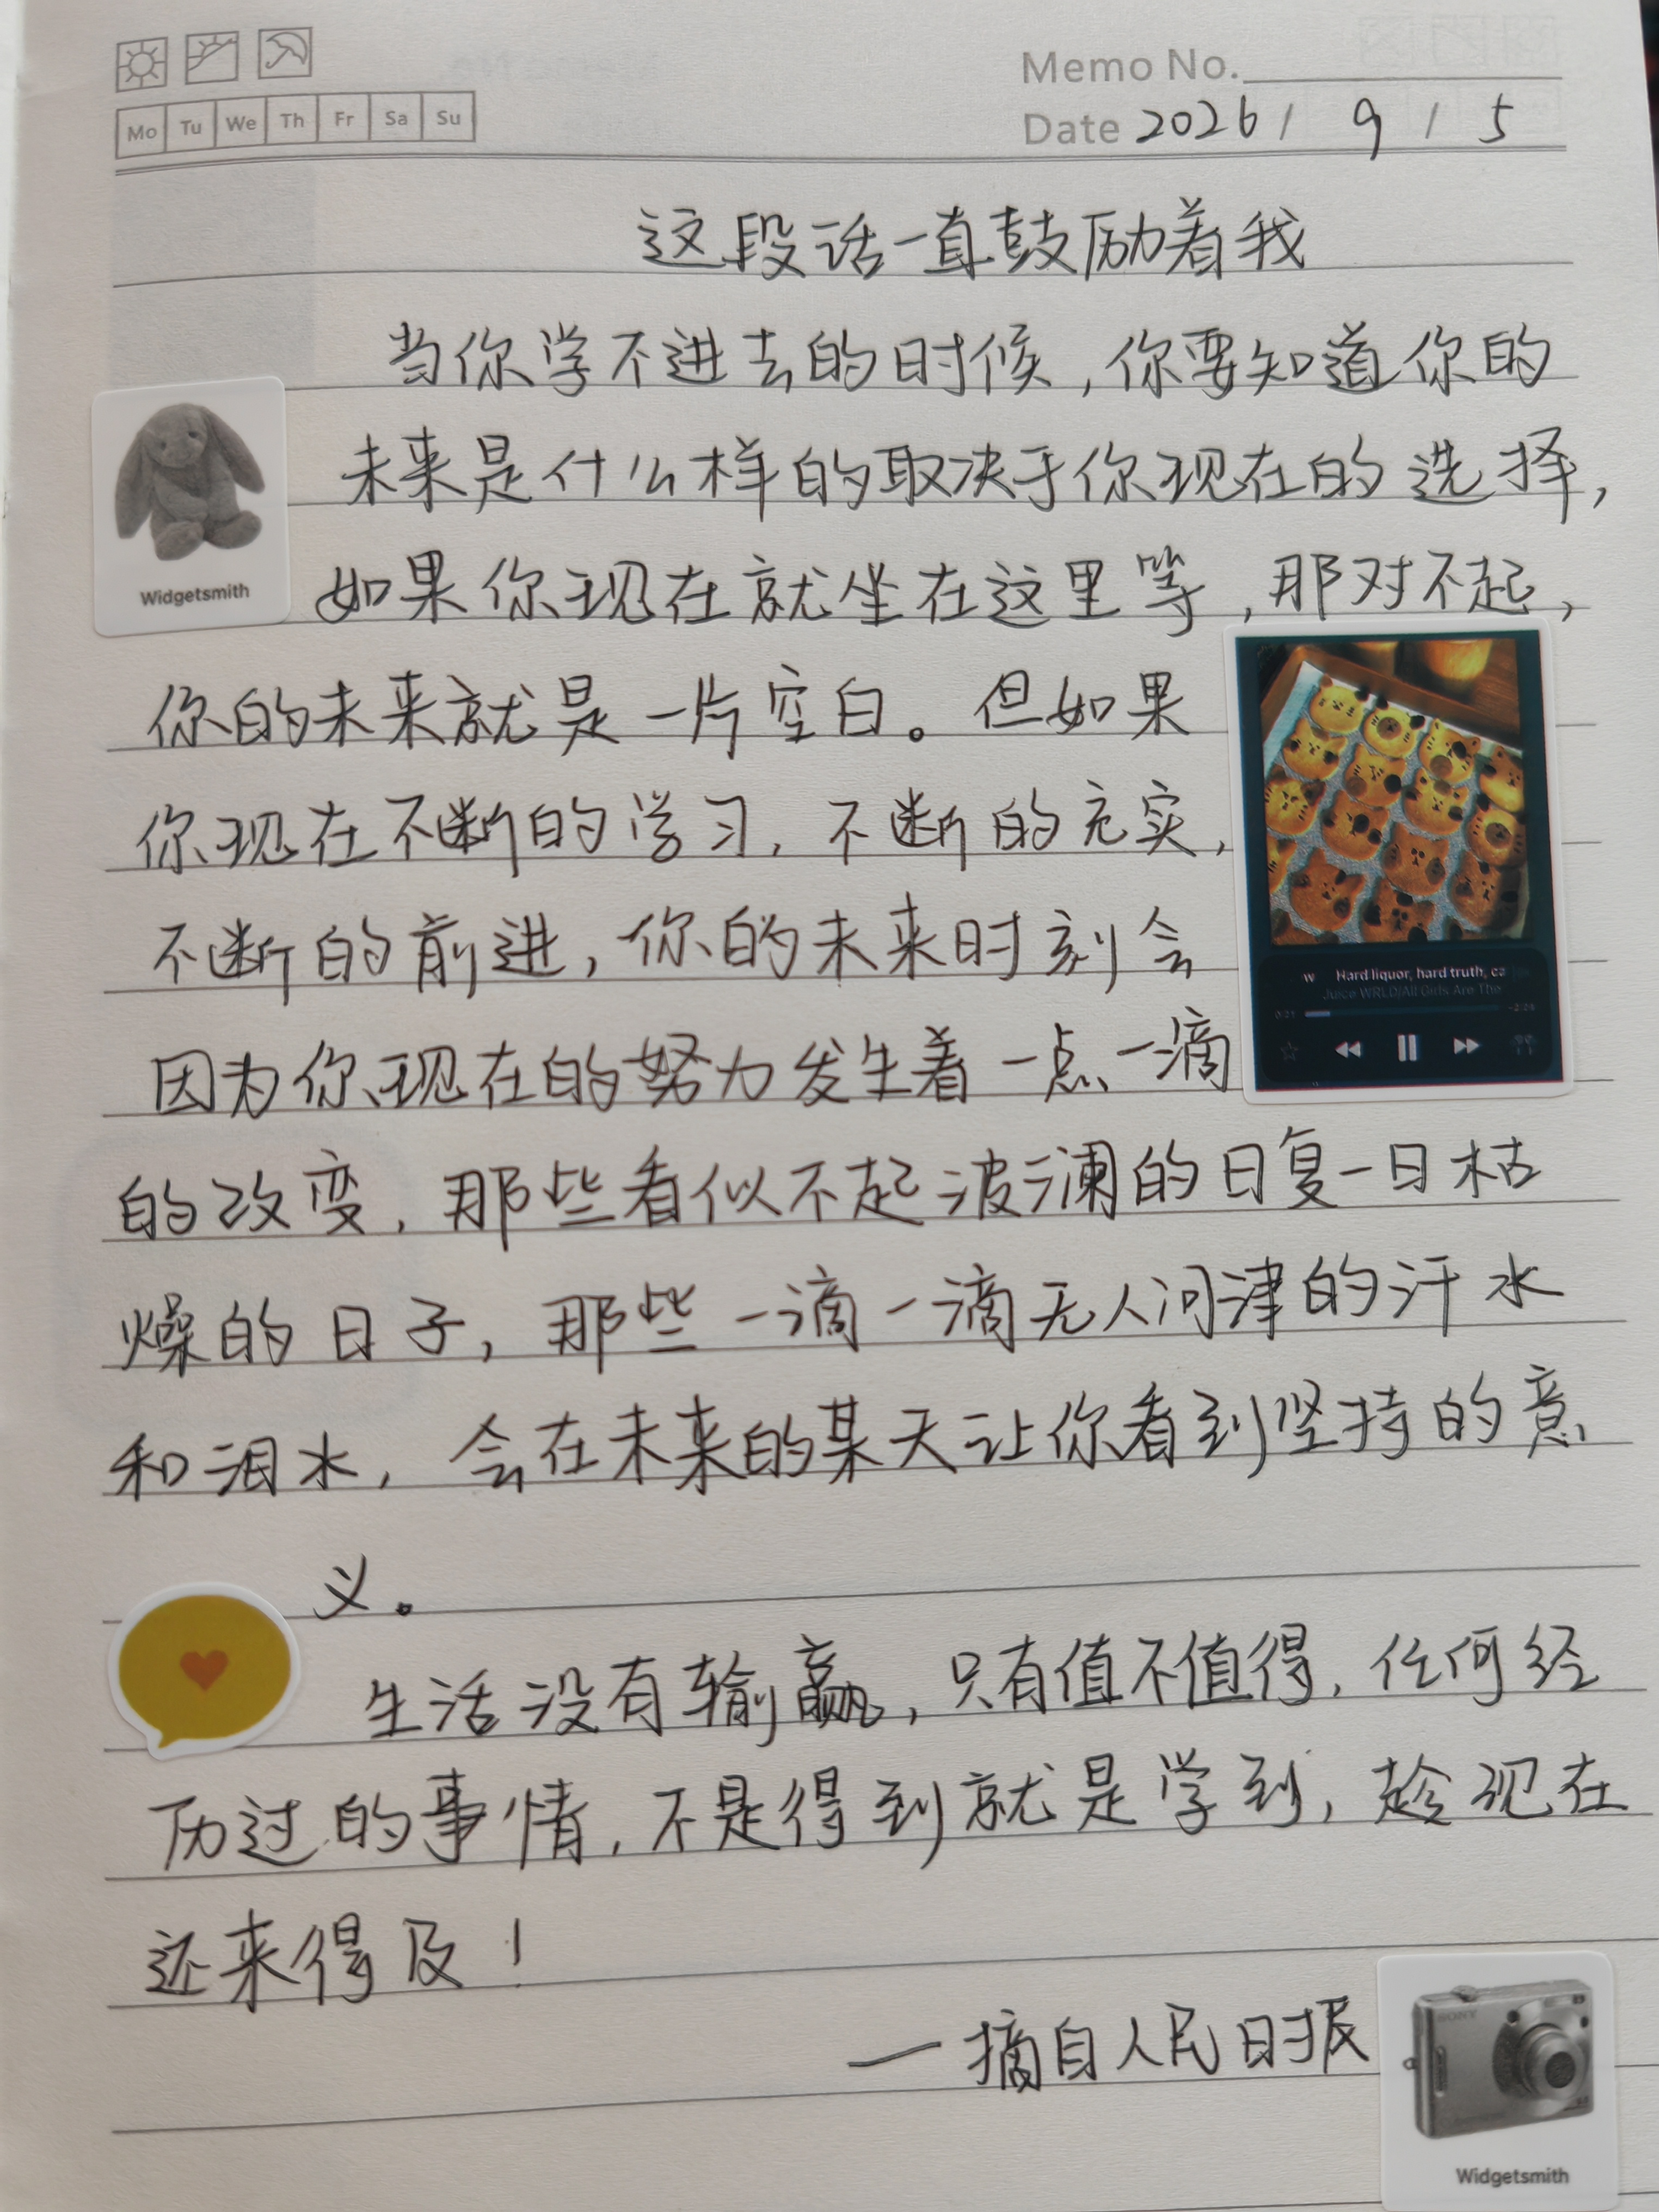 Memo No.
Mo Tu We Th Fr Sa Su
Date 2026 / 9 / 5
这段话一直鼓励着我
当你学不进去的时候,你要知道你的
未来是什么样的取决于你现在的选择,
如果你现在就坐在这里等,那对不起,
Widgetsmith
你的未来就是一片空白。但如果
你现在不断的学习,不断的充实,
不断的前进,你的未来时刻会
Hard liquor, hard truth, ca
Juice WRLD/All Girls Are The
因为你现在的努力发生着一点一滴
的改变,那些看似不起波澜的日复一日枯
燥的日子,那些一滴一滴无人问津的汗水
和泪水,会在未来的某天让你看到坚持的意
义。
生活没有输赢,只有值不值得,任何经
历过的事情,不是得到就是学到,趁现在
还来得及!
—摘自人民日报
SONY
Widgetsmith